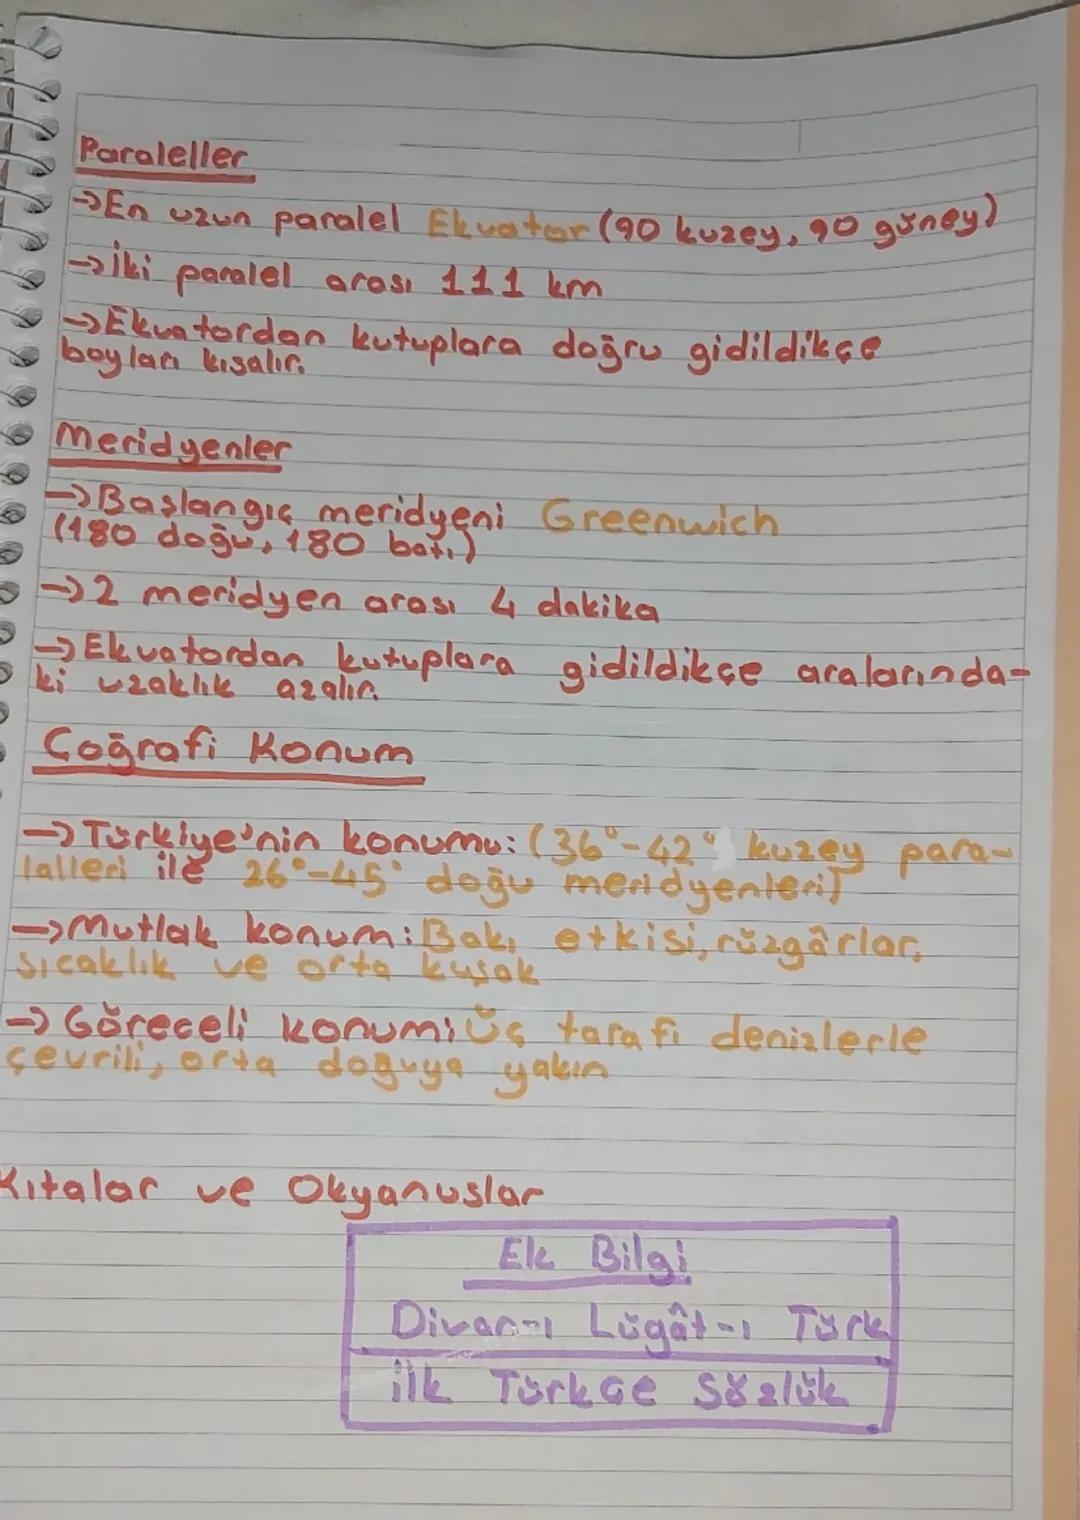 Paraleller
→En uzun paralel Ekvator (90 kuzey, 90 güney)
→İki paralel arası 111 km
→Ekvatordan kutuplara doğru gidildikçe
boyları kısalır.
Meridyenler
→Başlangıç meridyeni Greenwich
(180 doğu, 180 batı)
→2 meridyen arası 4 dakika
→Ekvatordan kutuplara gidildikçe aralarında-
ki uzaklık azalır.
Coğrafi Konum
→Türkiye'nin konumu: (36°-42° kuzey para-
lalleri ile 26°-45° doğu meridyenleri)
→Mutlak konum: Bakı etkisi, rüzgârlar,
sıcaklık ve orta kuşak
→Göreceli konum: Üç tarafı denizlerle
çevrili, orta doğuya yakın
Kıtalar ve Okyanuslar
Ek Bilgi
Divan-ı Lügât-ı Türk
ilk Türkçe Sözlük